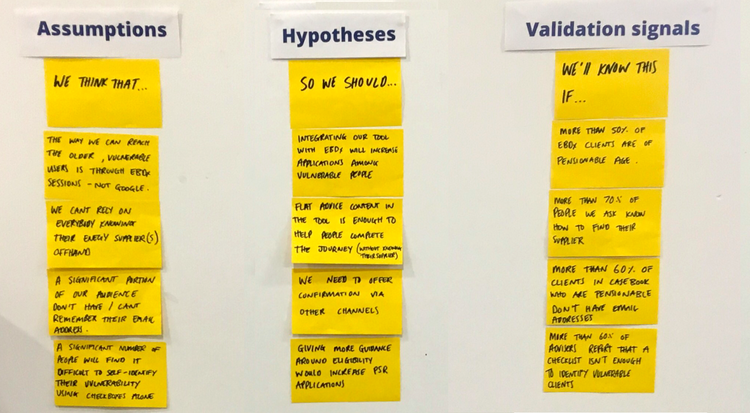 Assumptions
WE THINK THAT...
THE WAY WE CAN REACH
THE OLDER, VULNERABLE
USERS IS THROUGH EBDX
SESSIONS - NOT GOOGLE.
WE CANT RELY ON
EVERYBODY KNOWING
THEIR ENEGY SUPPLIER(S)
OFFHAND
A SIGNIFICANT PORTION
OF OUR AUDIENCE
DON'T HAVE / CANT
REMEMBER THEIR EMAIL
ADDRESS.
A SIGNIFICANT NUMBER OF
PEOPLE WILL FIND IT
DIFFICULT TO SELF-IDENTIFY
THEIR VULNERABILITY
USING CHECKBOXES ALONE
Hypotheses
SO WE SHOULD...
INTEGRATING OUR TOOL
WITH EBDX WILL INCREASE
APPLICATIONS AMONG
VULNERABLE PEOPLE
FLAT ADVICE CONTENT IN
THE TOOL IS ENOUGH TO
HELP PEOPLE COMPLETE
THE JOURNEY (WITHOUT KNOWING
THEIR SUPPLIER)
WE NEED TO OFFER
CONFIRMATION VIA
OTHER CHANNELS
GIVING MORE GUIDANCE
AROUND ELIGIBILITY
WOULD INCREASE PSR
APPLICATIONS
Validation signals
WE'LL KNOW THIS
IF...
MORE THAN 50% OF
EBDX CLIENTS ARE OF
PENSIONABLE AGE.
MORE THAN 70% OF
PEOPLE WE ASK KNOW
HOW TO FIND THEIR
SUPPLIER
MORE THAN 60% OF
CLIENTS IN CASEBOOK
WHO ARE PENSIONABLE
DON'T HAVE EMAIL
ADDRESSES
MORE THAN 60% OF
ADVISORS REPORT THAT A
CHECKLIST ISN'T ENOUGH
TO IDENTIFY VULNERABLE
CLIENTS